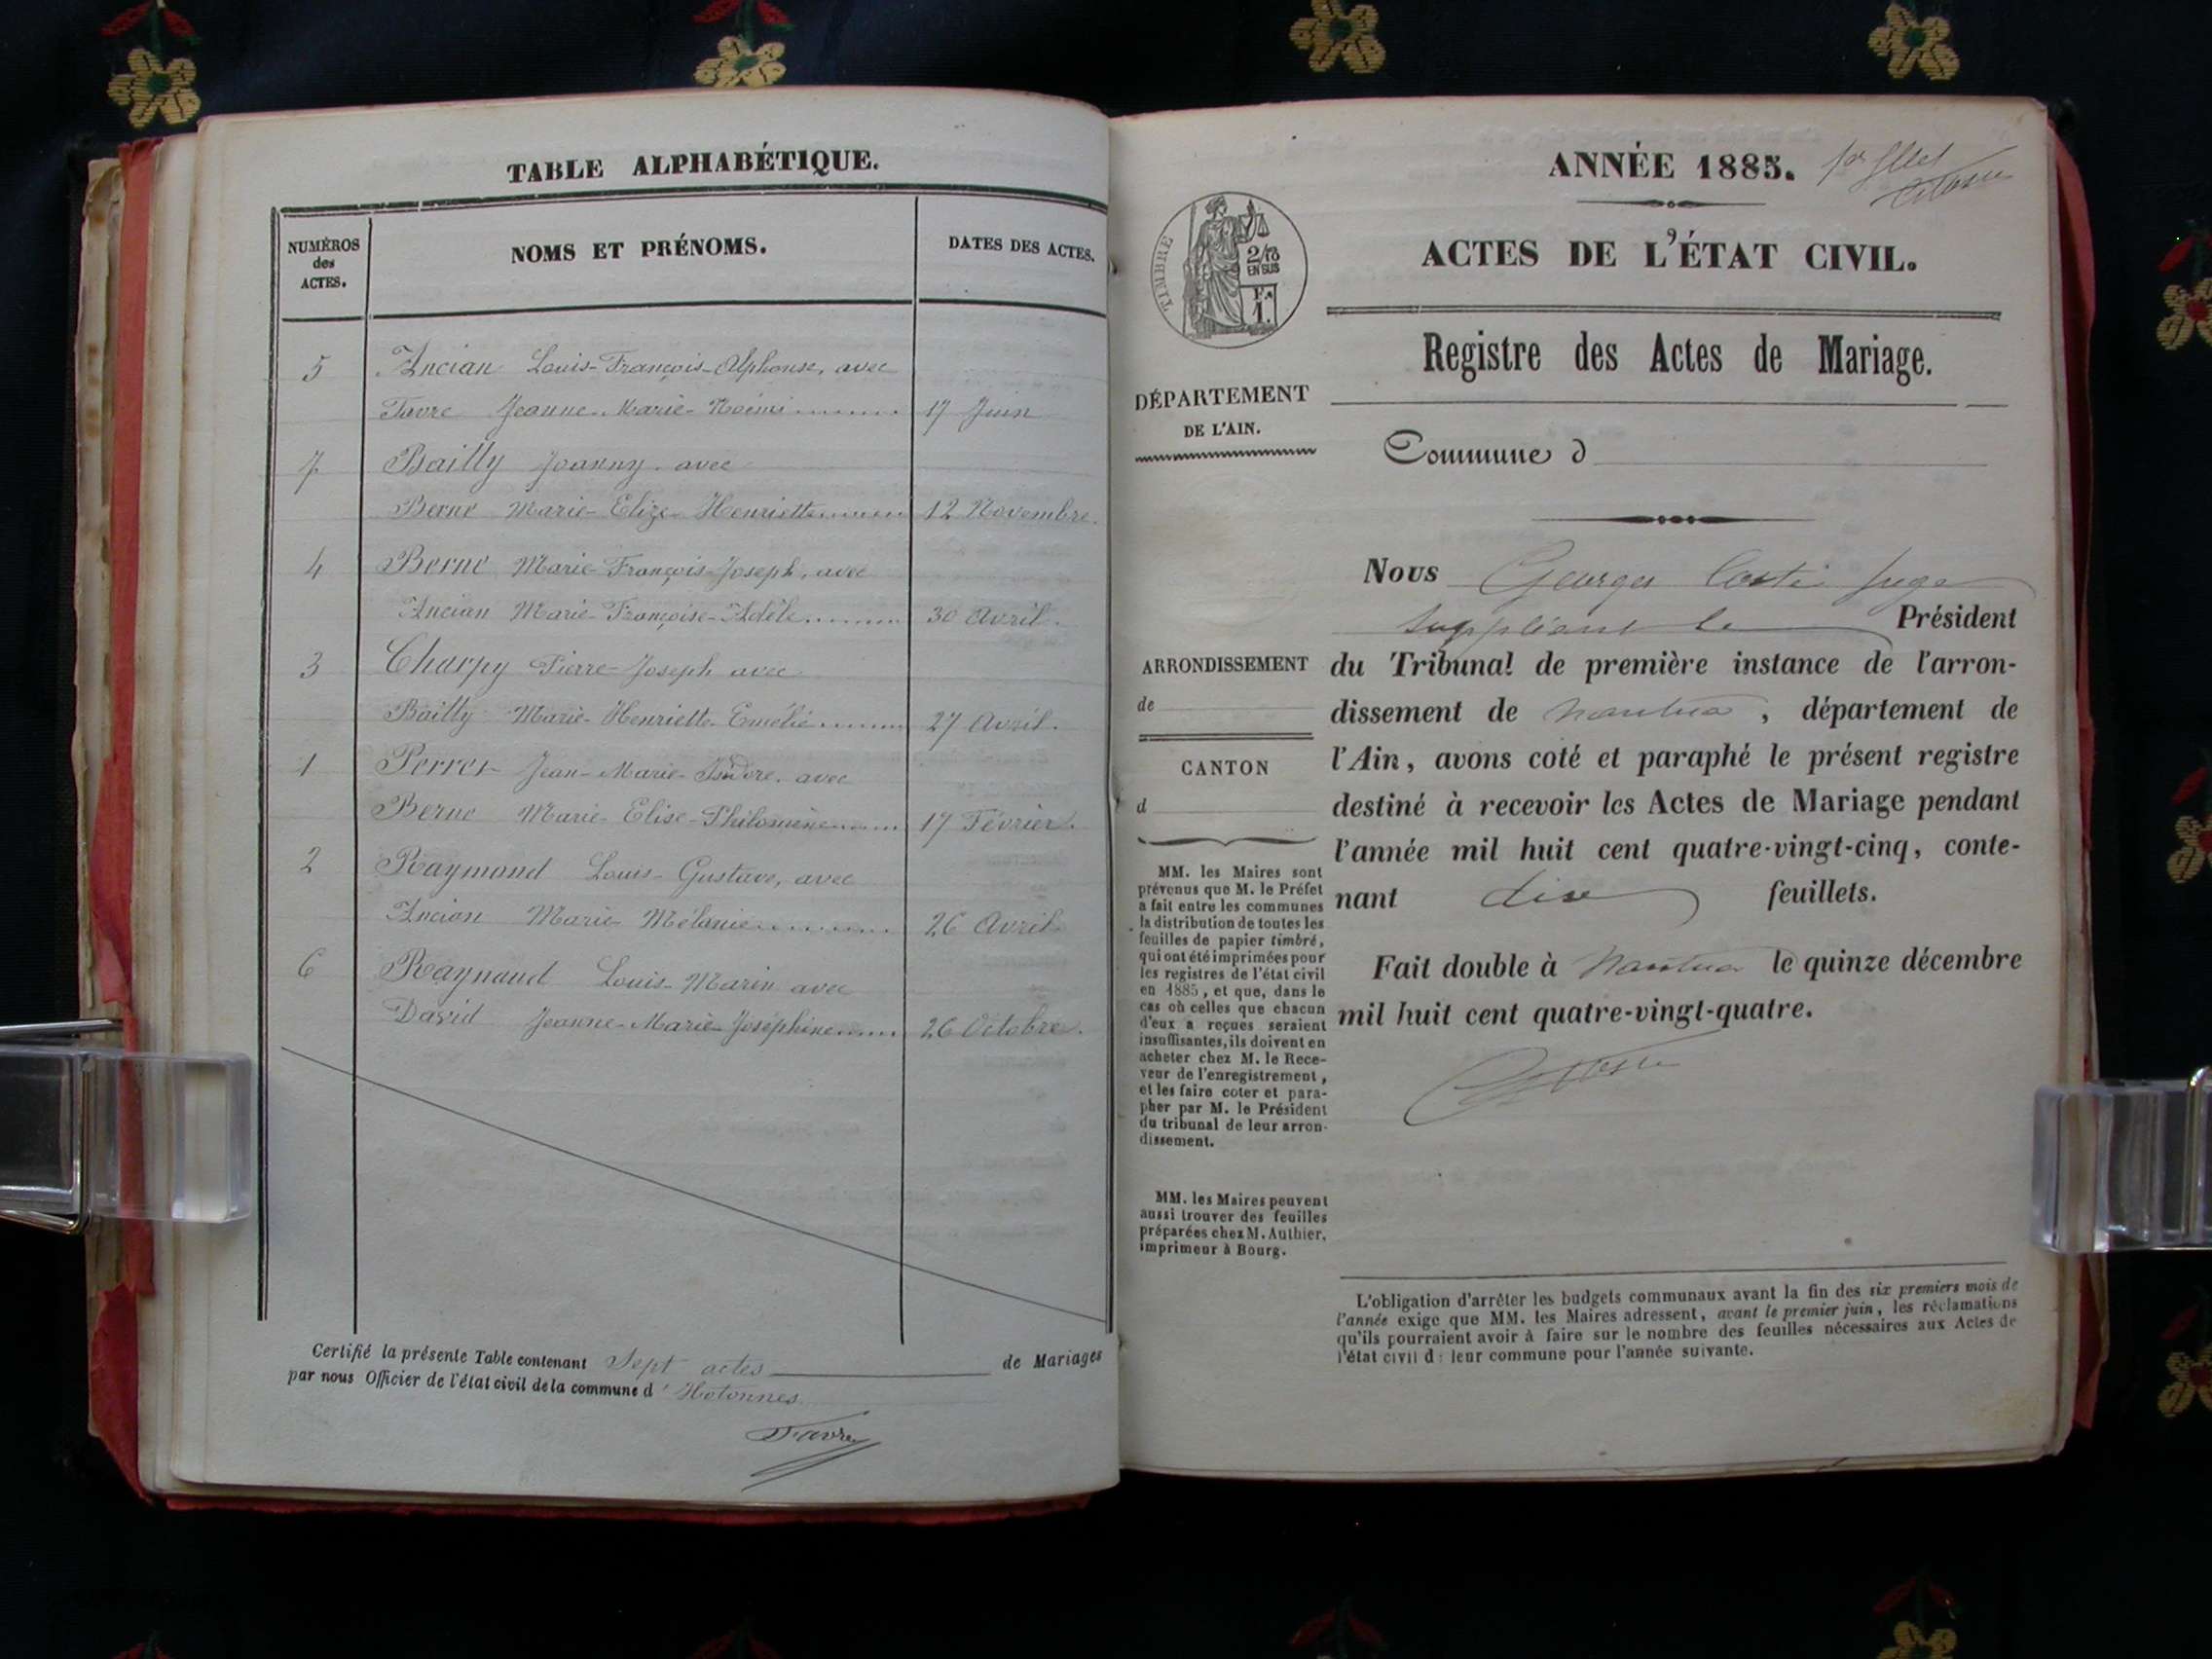 TABLE ALPHABÉTIQUE.
NUMÉROS
des
ACTES.
NOMS ET PRÉNOMS.
DATES DES ACTES.
5 Ancian Louis-François-Alphonse, avec
Favre Jeanne-Marie-Noémi 17 Juin
7 Bailly Joanny avec
Berne Marie-Elize-Henriette 12 Novembre.
4 Berne Marie-François-Joseph, avec
Ancian Marie-Françoise-Adèle 30 Avril.
3 Charpy Pierre-Joseph avec
Bailly Marie-Henriette-Emélie 27 Avril.
1 Perret Jean-Marie-Isidore, avec
Berne Marie-Elise-Philomène 17 Février.
2 Raymond Louis-Gustave, avec
Ancian Marie Mélanie 26 Avril
6 Raynaud Louis-Marin avec
David Jeanne-Marie-Joséphine 26 Octobre.
Certifié la présente Table contenant Sept actes de Mariages
par nous Officier de l'état civil de la commune d'Hotonnes
Favre
ANNÉE 1885.
TIMBRE
2/10
EN SUS
1.
ACTES DE L'ÉTAT CIVIL.
Registre des Actes de Mariage.
DÉPARTEMENT
DE L'AIN.
Commune d
ARRONDISSEMENT
de
CANTON
d
MM. les Maires sont
prévenus que M. le Préfet
a fait entre les communes
la distribution de toutes les
feuilles de papier timbré,
qui ont été imprimées pour
les registres de l'état civil
en 1885, et que, dans le
cas où celles que chacun
d'eux a reçues seraient
insuffisantes, ils doivent en
acheter chez M. le Rece-
veur de l'enregistrement,
et les faire coter et para-
pher par M. le Président
du tribunal de leur arron-
dissement.
MM. les Maires peuvent
aussi trouver des feuilles
préparées chez M. Authier,
imprimeur à Bourg.
Nous Georges Coste Juge
suppléant le Président
du Tribunal de première instance de l'arron-
dissement de Nantua, département de
l'Ain, avons coté et paraphé le présent registre
destiné à recevoir les Actes de Mariage pendant
l'année mil huit cent quatre-vingt-cinq, conte-
nant dix feuillets.
Fait double à Nantua le quinze décembre
mil huit cent quatre-vingt-quatre.
L'obligation d'arrêter les budgets communaux avant la fin des six premiers mois de
l'année exige que MM. les Maires adressent, avant le premier juin, les réclamations
qu'ils pourraient avoir à faire sur le nombre des feuilles nécessaires aux Actes de
l'état civil d: leur commune pour l'année suivante.